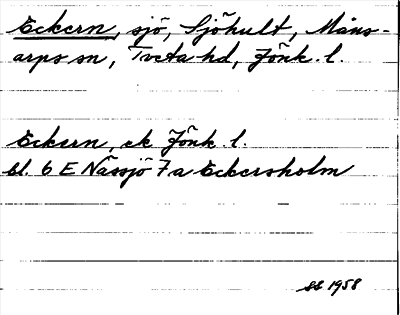 Eckern, sjö, Sjöhult, Måns-
arps sn, Tveta hd, Jönk. l.
Eckern, ek Jönk. l.
bl. 6 E Nässjö 7 a Eckersholm
1958